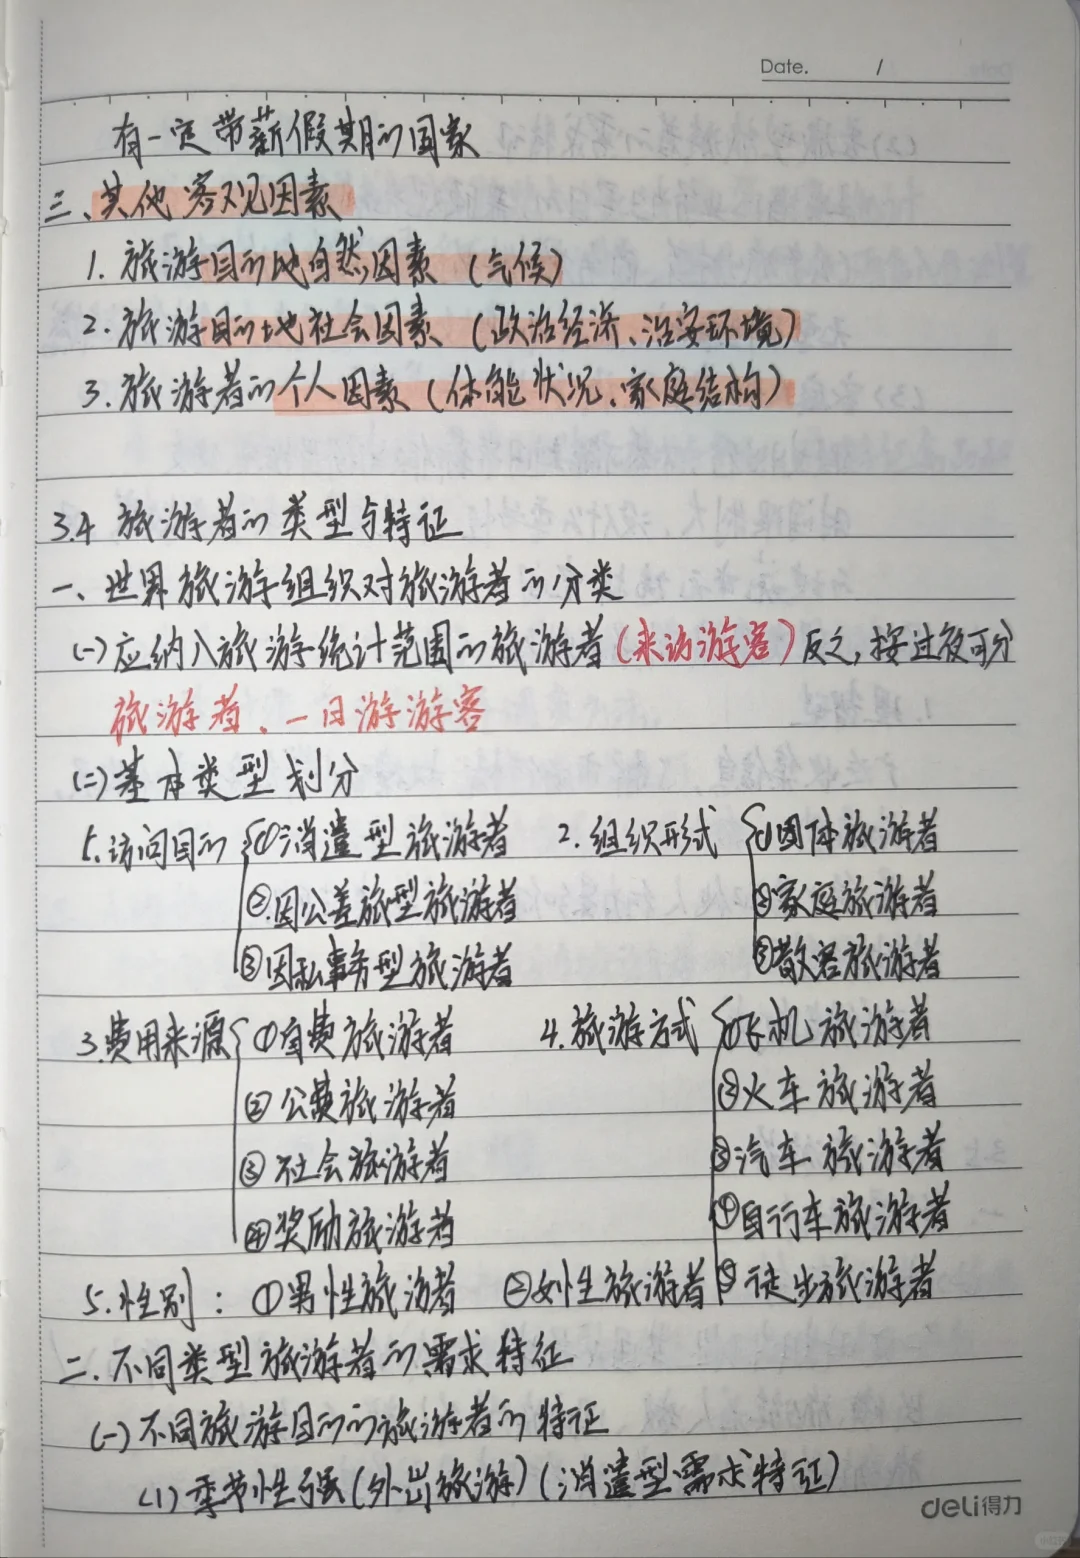 Date. /
有一定带薪假期的国家
三、其他客观因素
1. 旅游目的地自然因素（气候）
2. 旅游目的地社会因素（政治经济、治安环境）
3. 旅游者的个人因素（体能状况、家庭结构）
3.4 旅游者的类型与特征
一、世界旅游组织对旅游者的分类
(一) 应纳入旅游统计范围的旅游者（来访游客）反之，按过夜可分
旅游者、一日游游客
(二) 基本类型划分
1. 访问目的 { ①消遣型旅游者 2. 组织形式 { ①团体旅游者
②因公差旅型旅游者 ②家庭旅游者
③因私事务型旅游者 ③散客旅游者
3. 费用来源 { ①自费旅游者 4. 旅游方式 { ①飞机旅游者
②公费旅游者 ②火车旅游者
③社会旅游者 ③汽车旅游者
④奖励旅游者 ④自行车旅游者
5. 性别： ①男性旅游者 ②女性旅游者 ⑤徒步旅游者
二. 不同类型旅游者的需求特征
(一) 不同旅游目的的旅游者的特征
(1) 季节性强（外出旅游）（消遣型需求特征）
deli得力